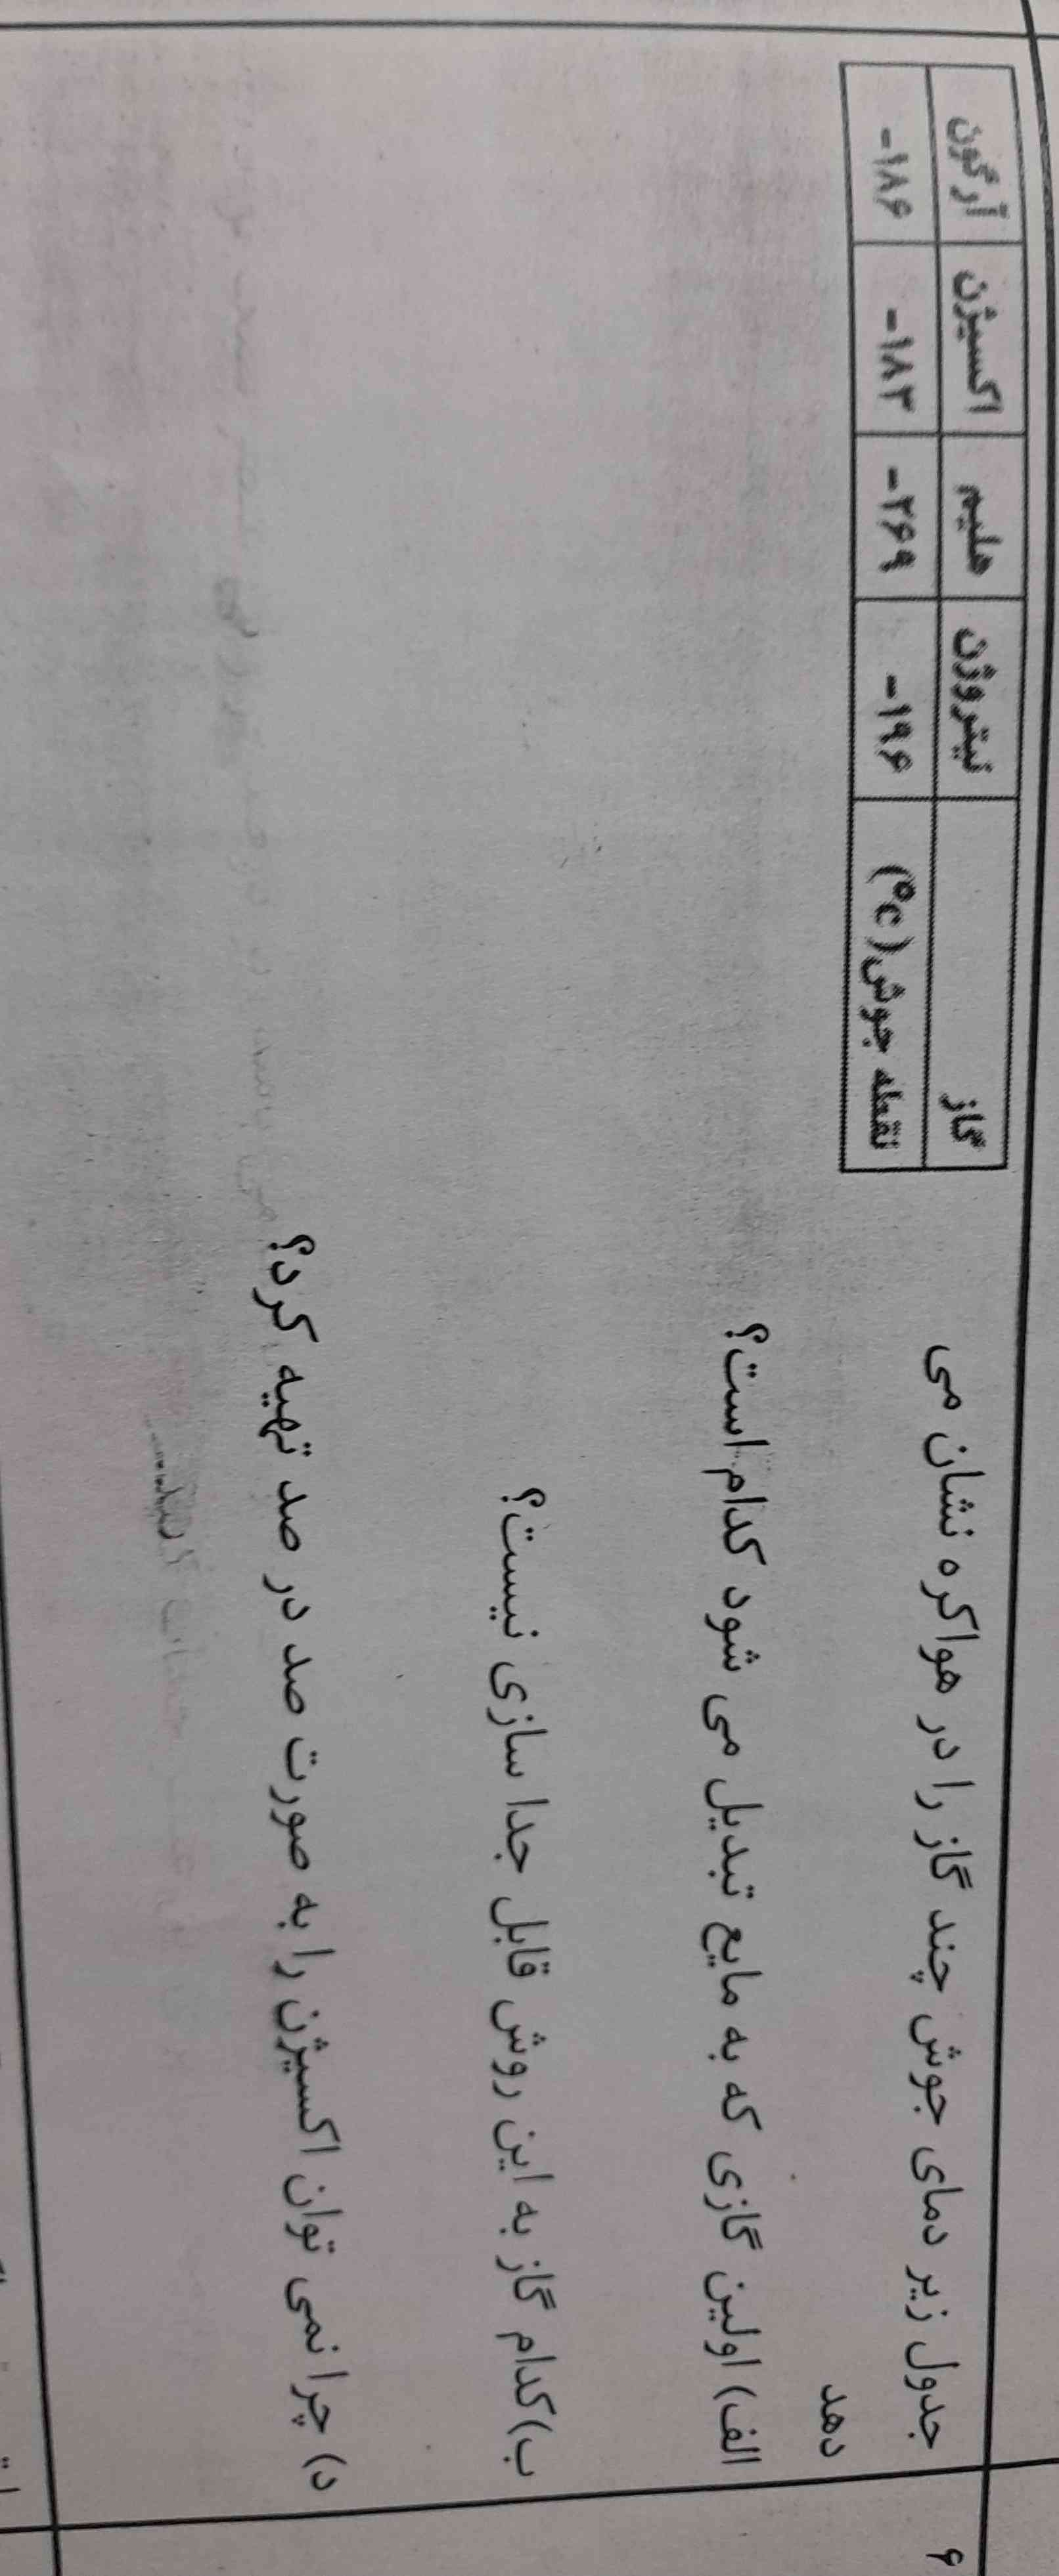 ۶
جدول زیر دمای جوش چند گاز را در هواکره نشان می
دهد
گاز نیتروژن هلیم اکسیژن آرگون
نقطه جوش(°c) -۱۹۶ -۲۶۹ -۱۸۳ -۱۸۶
الف) اولین گازی که به مایع تبدیل می شود کدام است؟
ب)کدام گاز به این روش قابل جدا سازی نیست؟
د) چرا نمی توان اکسیژن را به صورت صد در صد تهیه کرد؟